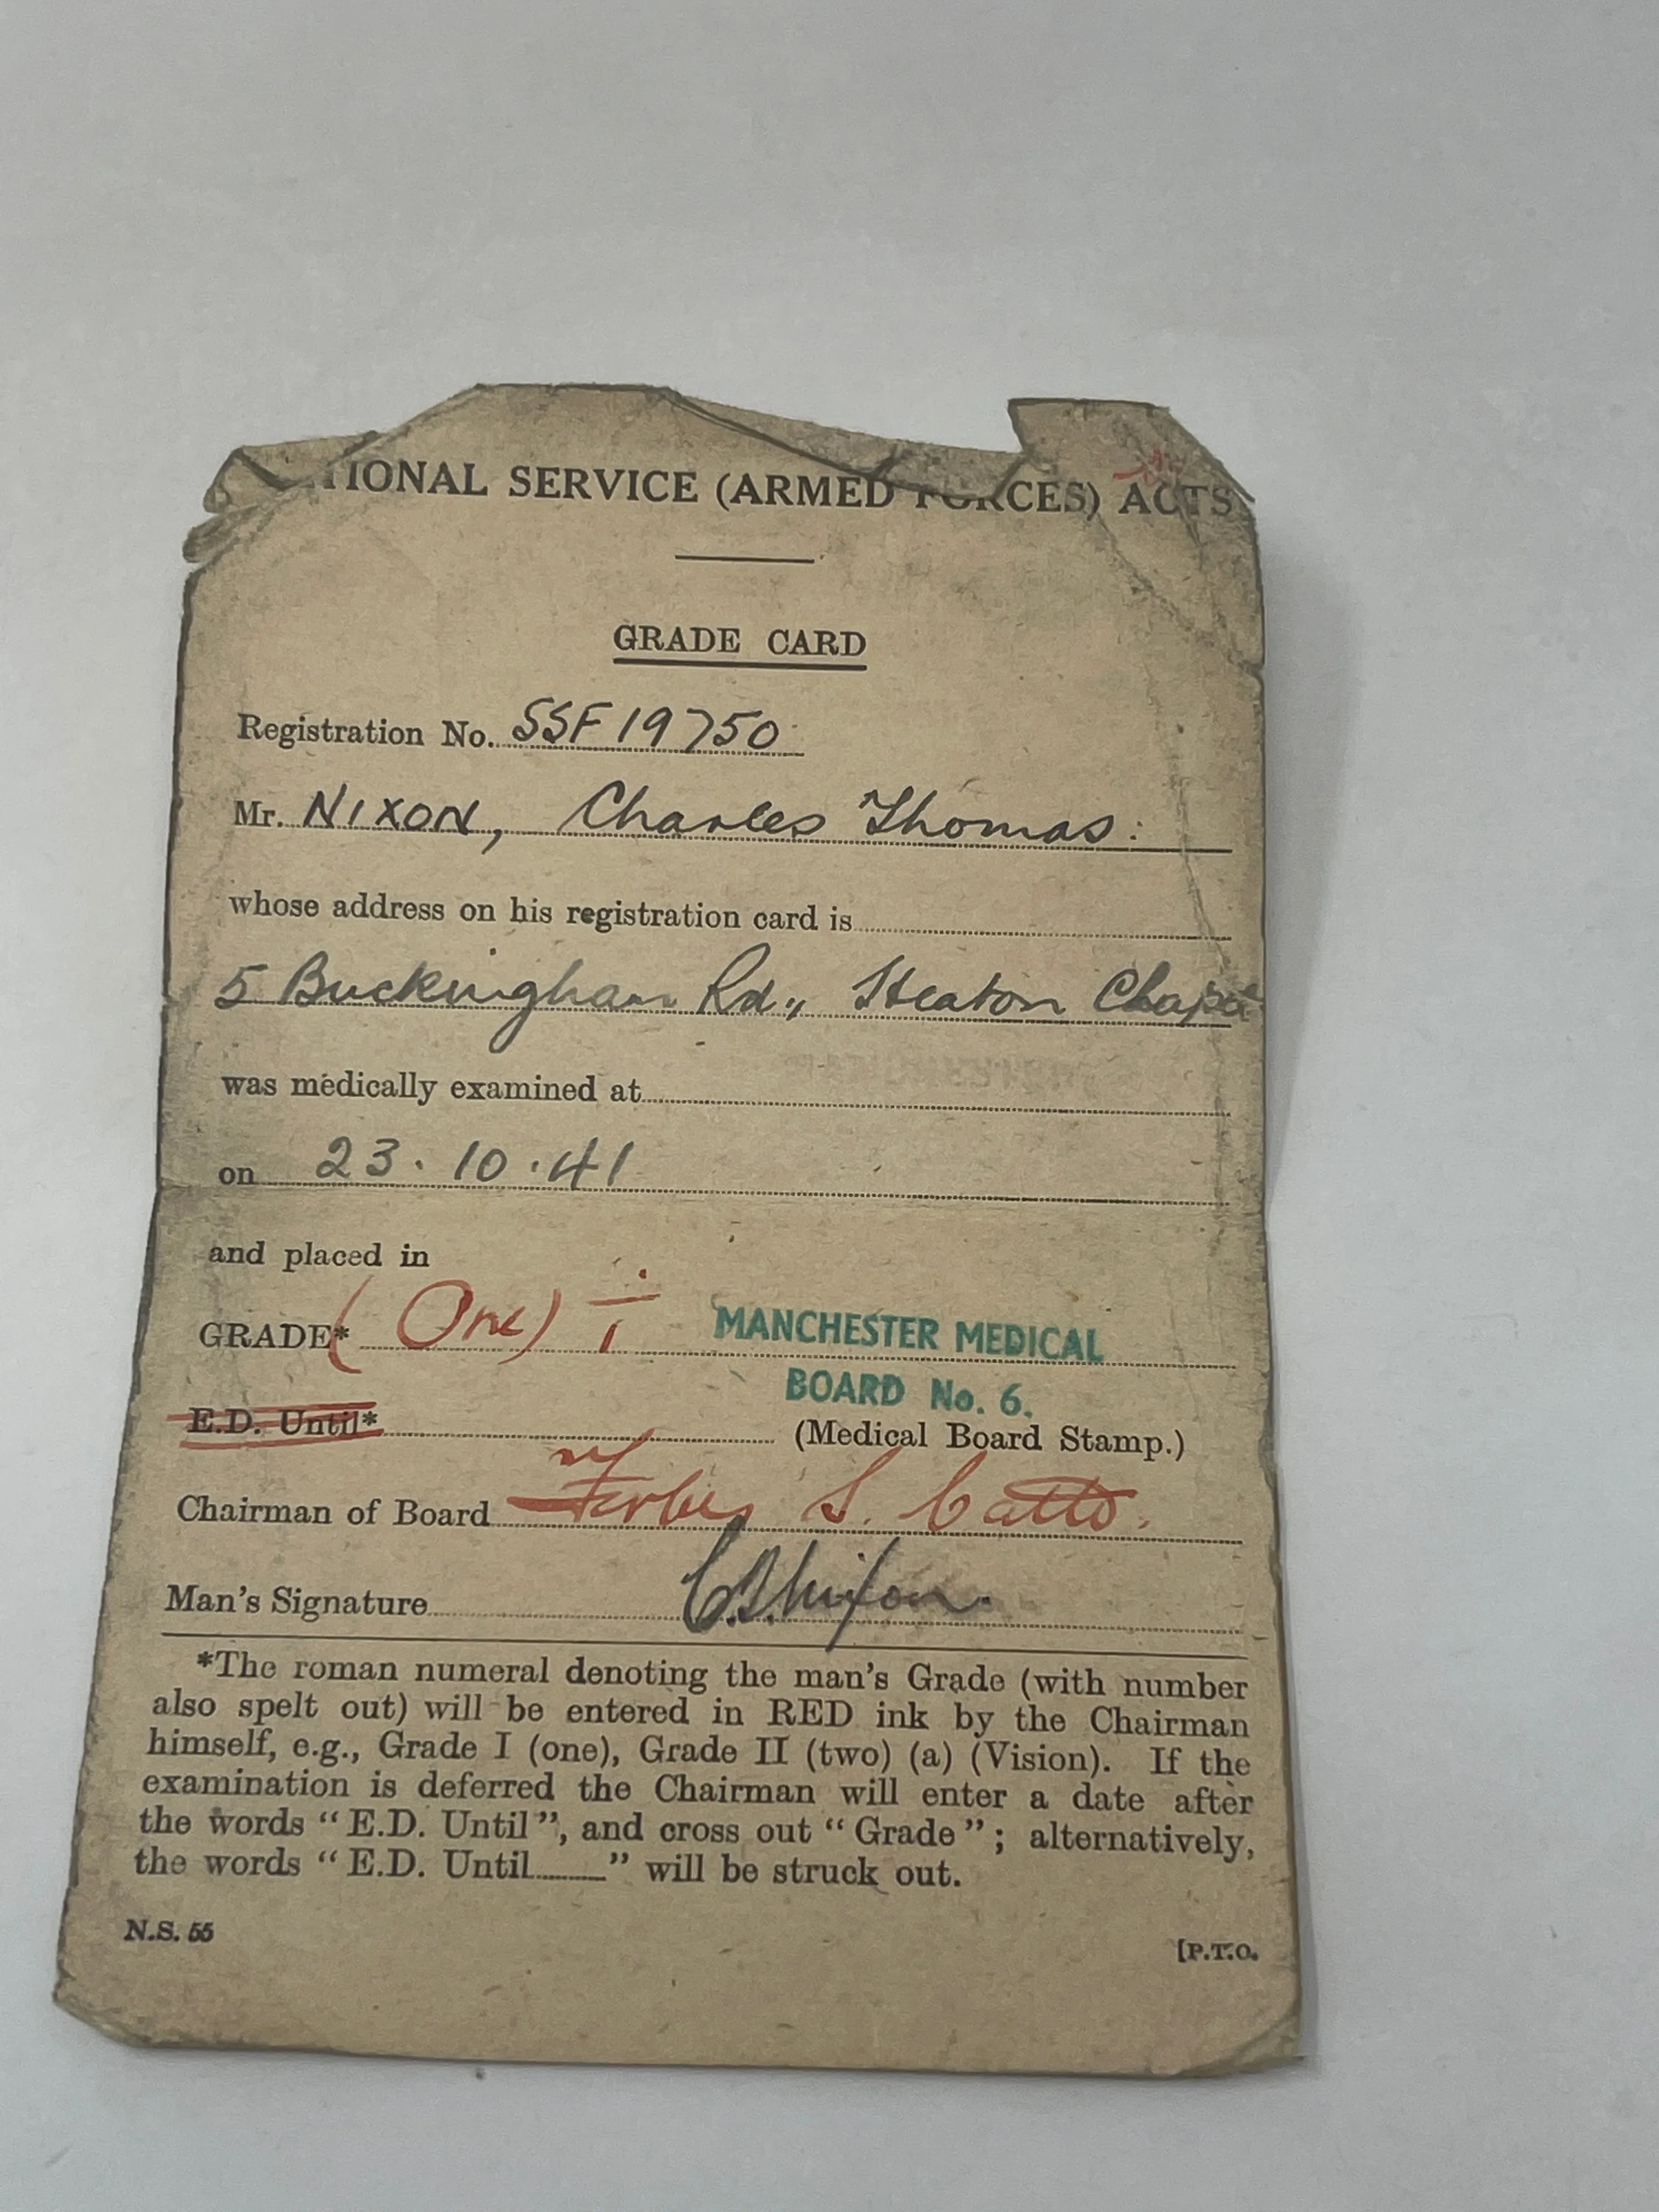 TIONAL SERVICE (ARMED FORCES) ACTS
GRADE CARD
Registration No. SSF 19750
Mr. NIXON, Charles Thomas.
whose address on his registration card is
5 Buckingham Rd., Heaton Chapel
was medically examined at
on 23. 10. 41
and placed in
GRADE* (One) I MANCHESTER MEDICAL
BOARD No. 6.
E.D. Until* (Medical Board Stamp.)
Chairman of Board Forbes S. Catto.
Man's Signature C.T. Nixon.
*The roman numeral denoting the man's Grade (with number
also spelt out) will be entered in RED ink by the Chairman
himself, e.g., Grade I (one), Grade II (two) (a) (Vision). If the
examination is deferred the Chairman will enter a date after
the words "E.D. Until", and cross out "Grade"; alternatively,
the words "E.D. Until......" will be struck out.
N.S. 55
[P.T.O.